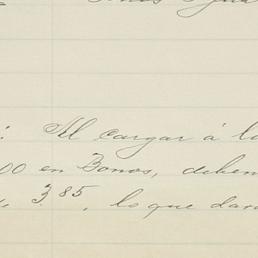 : Al cargar á lo
00 en Bonos, deben
3.85, lo que dara